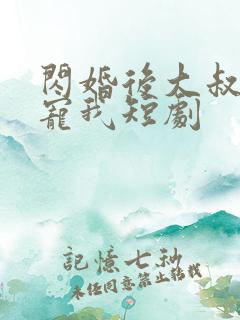 閃婚後大叔
寵我短劇
記憶七秒
未经同意禁止转载